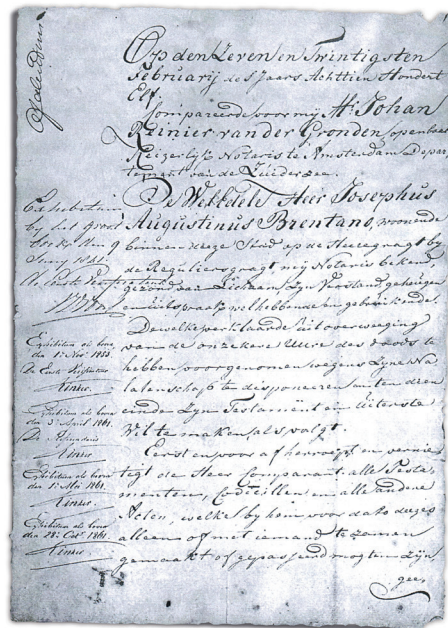 Op den Zeven en Twintigsten
Februarij des Jaars Achttien Hondert
Elf.
Compareerde voor mij Mr. Johan
Reinier van der Gronden, openbaar
Keizerlijk Notaris te Amsterdam Depar
tement van de Zuiderzee.
De WelEdele Heer Josephus
Augustinus Brentano, woonende
binnen deze Stad op de Heeregragt bij
de Reguliersgragt, mij Notaris bekend
gezond van Lichaam, zijn Verstand geheugen
en uitspraak wel hebbende en gebruikende.
Dewelke verklaarde uit overweeging
van de onzekere Uure des doods te
hebben voorgenomen wegens zijne Na
latenschap te disponeeren en ten dien
einde zijn Testament en Uiterste
Wil te maken, als volgt.
Eerst en vooraf herroept en vernie
tigt de Heer Comparant alle Testa
menten, Codicillen en alle andere
Acten, welke bij hem voor dato dezes
alleen of met iemand te zamen
gemaakt of gepasseerd mogten zijn
gee,
Exhibitum
Exhibitum als boven
den 1e Nov 1853.
Exhibitum als boven
den 3e April 1861.
Exhibitum als boven
den 1e Mei 1861.
Exhibitum als boven
den 28e Oct 1861.